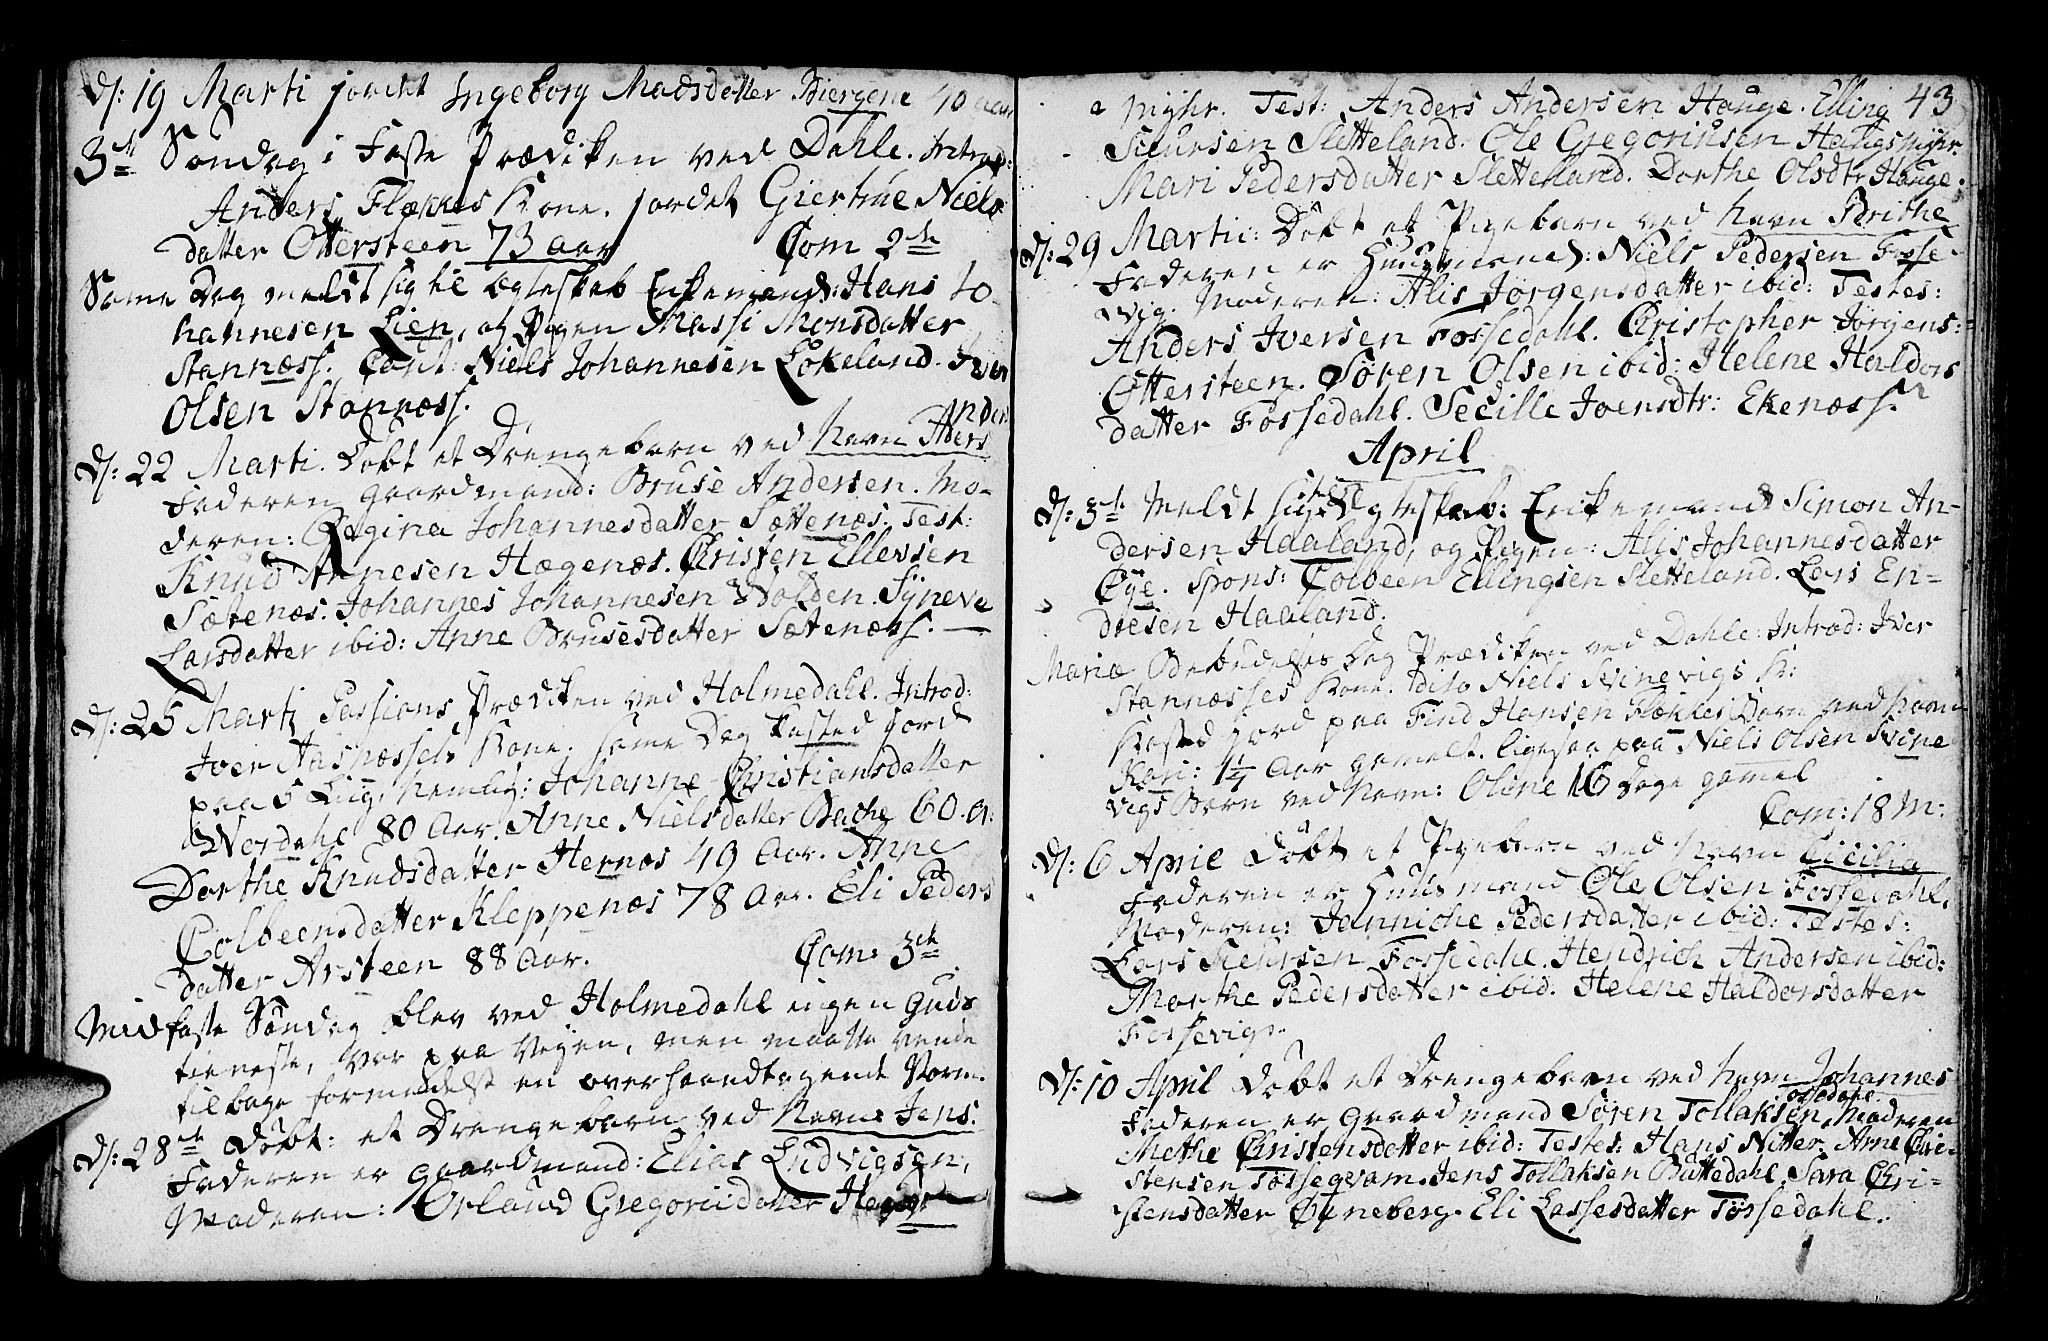 D/: 19 Marti jordet Ingeborg Madsdotter Biergene 40 aar
3de Søndag i Faste Prædiken ved Dahle. Introd:
Anders Flækkes Kone. jordet Giertrue Niels
datter Ottersteen 73 aar Com 2de
Same Dag meldt sig til Egteskab Enkemand: Hans Jo-
hannesen Lien, og Pigen Massi Monsdatter
Stannæss. Caut: Niels Johannesen Løkeland. Iver
Olsen Stannæss.
Ander
D/: 22 Marti. Døbt et Drengebarn ved Navn
Faderen gaardmand: Bruse Andersen. Mo-
deren: Regina Johannesdatter Sættenæs. Test:
Knud Annesen Hægenæs. Christen Ellevsen
Sætenæs. Johannes Johannesen Dolden. Syneve
Larsdatter ibid: Anne Brusesdatter Sætenæss.
D/: 25 Marti Passions Prædiken ved Holmedahl. Introd:
Iver Aasnæssels Kone. Same Dag kasted Jord
paa 5 Liig, nemlig: Johanne Christiansdatter
Werdahl 80 Aar. Anne Nielsdatter Bache 60. a:
Dorthe Knudsdatter Hernæs 49 Aar. Anne
Colbeensdatter Kleppenæs 78 Aar. Eli Peders
datter Arsteen 88 Aar. Com: 3de
Midfaste Søndag blev ved Holmedahl ingen Guds
tieneste, var paa Veyen, men maatte vende
tilbage formedelst en overhaandtagende Storm.
D/: 28de Døbt: et Drengebarn ved Navn Jens.
Faderen er gaardmand: Elias Ludvigsen,
Moderen: Orland Gregoriidatter

43
Test: Anders Andersen Hauge. Elling
Siursen Sletteland. Ole Gregoriusen
Mari Pedersdatter Sletteland. Dorthe Olsdtr Hauge.
D/: 29 Martii: Døbt et Pigebarn ved Navn Brithe
Faderen er Huusmand: Niels Pedersen Fosse-
vig. Moderen: Alis Jørgensdatter ibid: Testes:
Anders Iversen Fossedahl. Christopher Jørgens:
Ottersteen. Søren Olsen ibid: Helene Haldors
datter Fossedahl. Secille Joensdtr: Ekenæss.
April
D/: 3de Meldt sig til Egteskab: Enkemand Simon An-
dersen Haaland, og Pigen: Alis Johannesdatter
Øye. Spons: Colbeen Ellingsen Sletteland. Lars En-
dresen Haaland.
Mariæ Bebudelses Dag Prædiken ved Dahle: Introd: Iver
Stannæsses Kone. Dito Niels Svinevigs K:
Kasted Jord paa Find Hansen Flekkes Barn ved Navn
Kari: 1 1/4 Aar gamelt. ligesaa paa Niels Olsen Svine
vigs Barn ved Navn: Oline 16 Dage gamel
Com: 18 M:
D/: 6 April Døbt et Pigebarn ved Navn Cicilia
Faderen er Huusmand Ole Olsen Fossedahl.
Moderen: Jannicke Pedersdatter ibid: Testes:
Lars Siursen Fossedahl. Hendrich Andersen ibid:
Marthe Pedersdatter ibid. Helene Haldorsdatter
Fossevig.
D/: 10 April Døbt et Drengebarn ved Navn Johannes
Tossedahl.
Faderen er gaardmand Søren Tollaksen, Moderen
Methe Christensdatter ibid: Testes: Hans Nitter. Arne Chri-
stensen Tossegvam. Jens Tollaksen Buttedahl. Sara Chri-
stensdatter Øyneberg. Eli Lassesdatter Tossedahl.